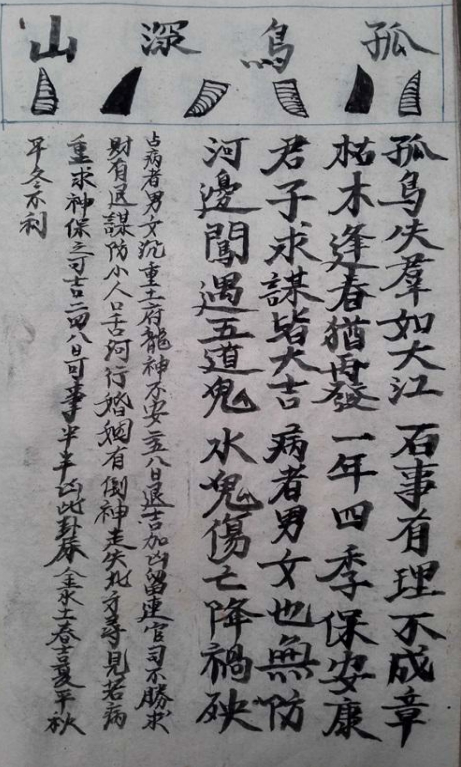 孤鳥深山
孤鳥失羣如大江 石事有理不成章
枯木逢春猶再發 一年四季保安康
君子求謀皆大吉 病者男女也無防
河邊闖遇五道鬼 水鬼傷亡降禍殃
占病者男女沉重土府龍神不安二五八日退吉加凶留連官司不勝求
財有退謀防小人口舌河行婚姻有倒神走失北方尋見若病
重求神保之可吉二四八日可事半半凶此卦係金水土春吉夏平秋
平冬不利